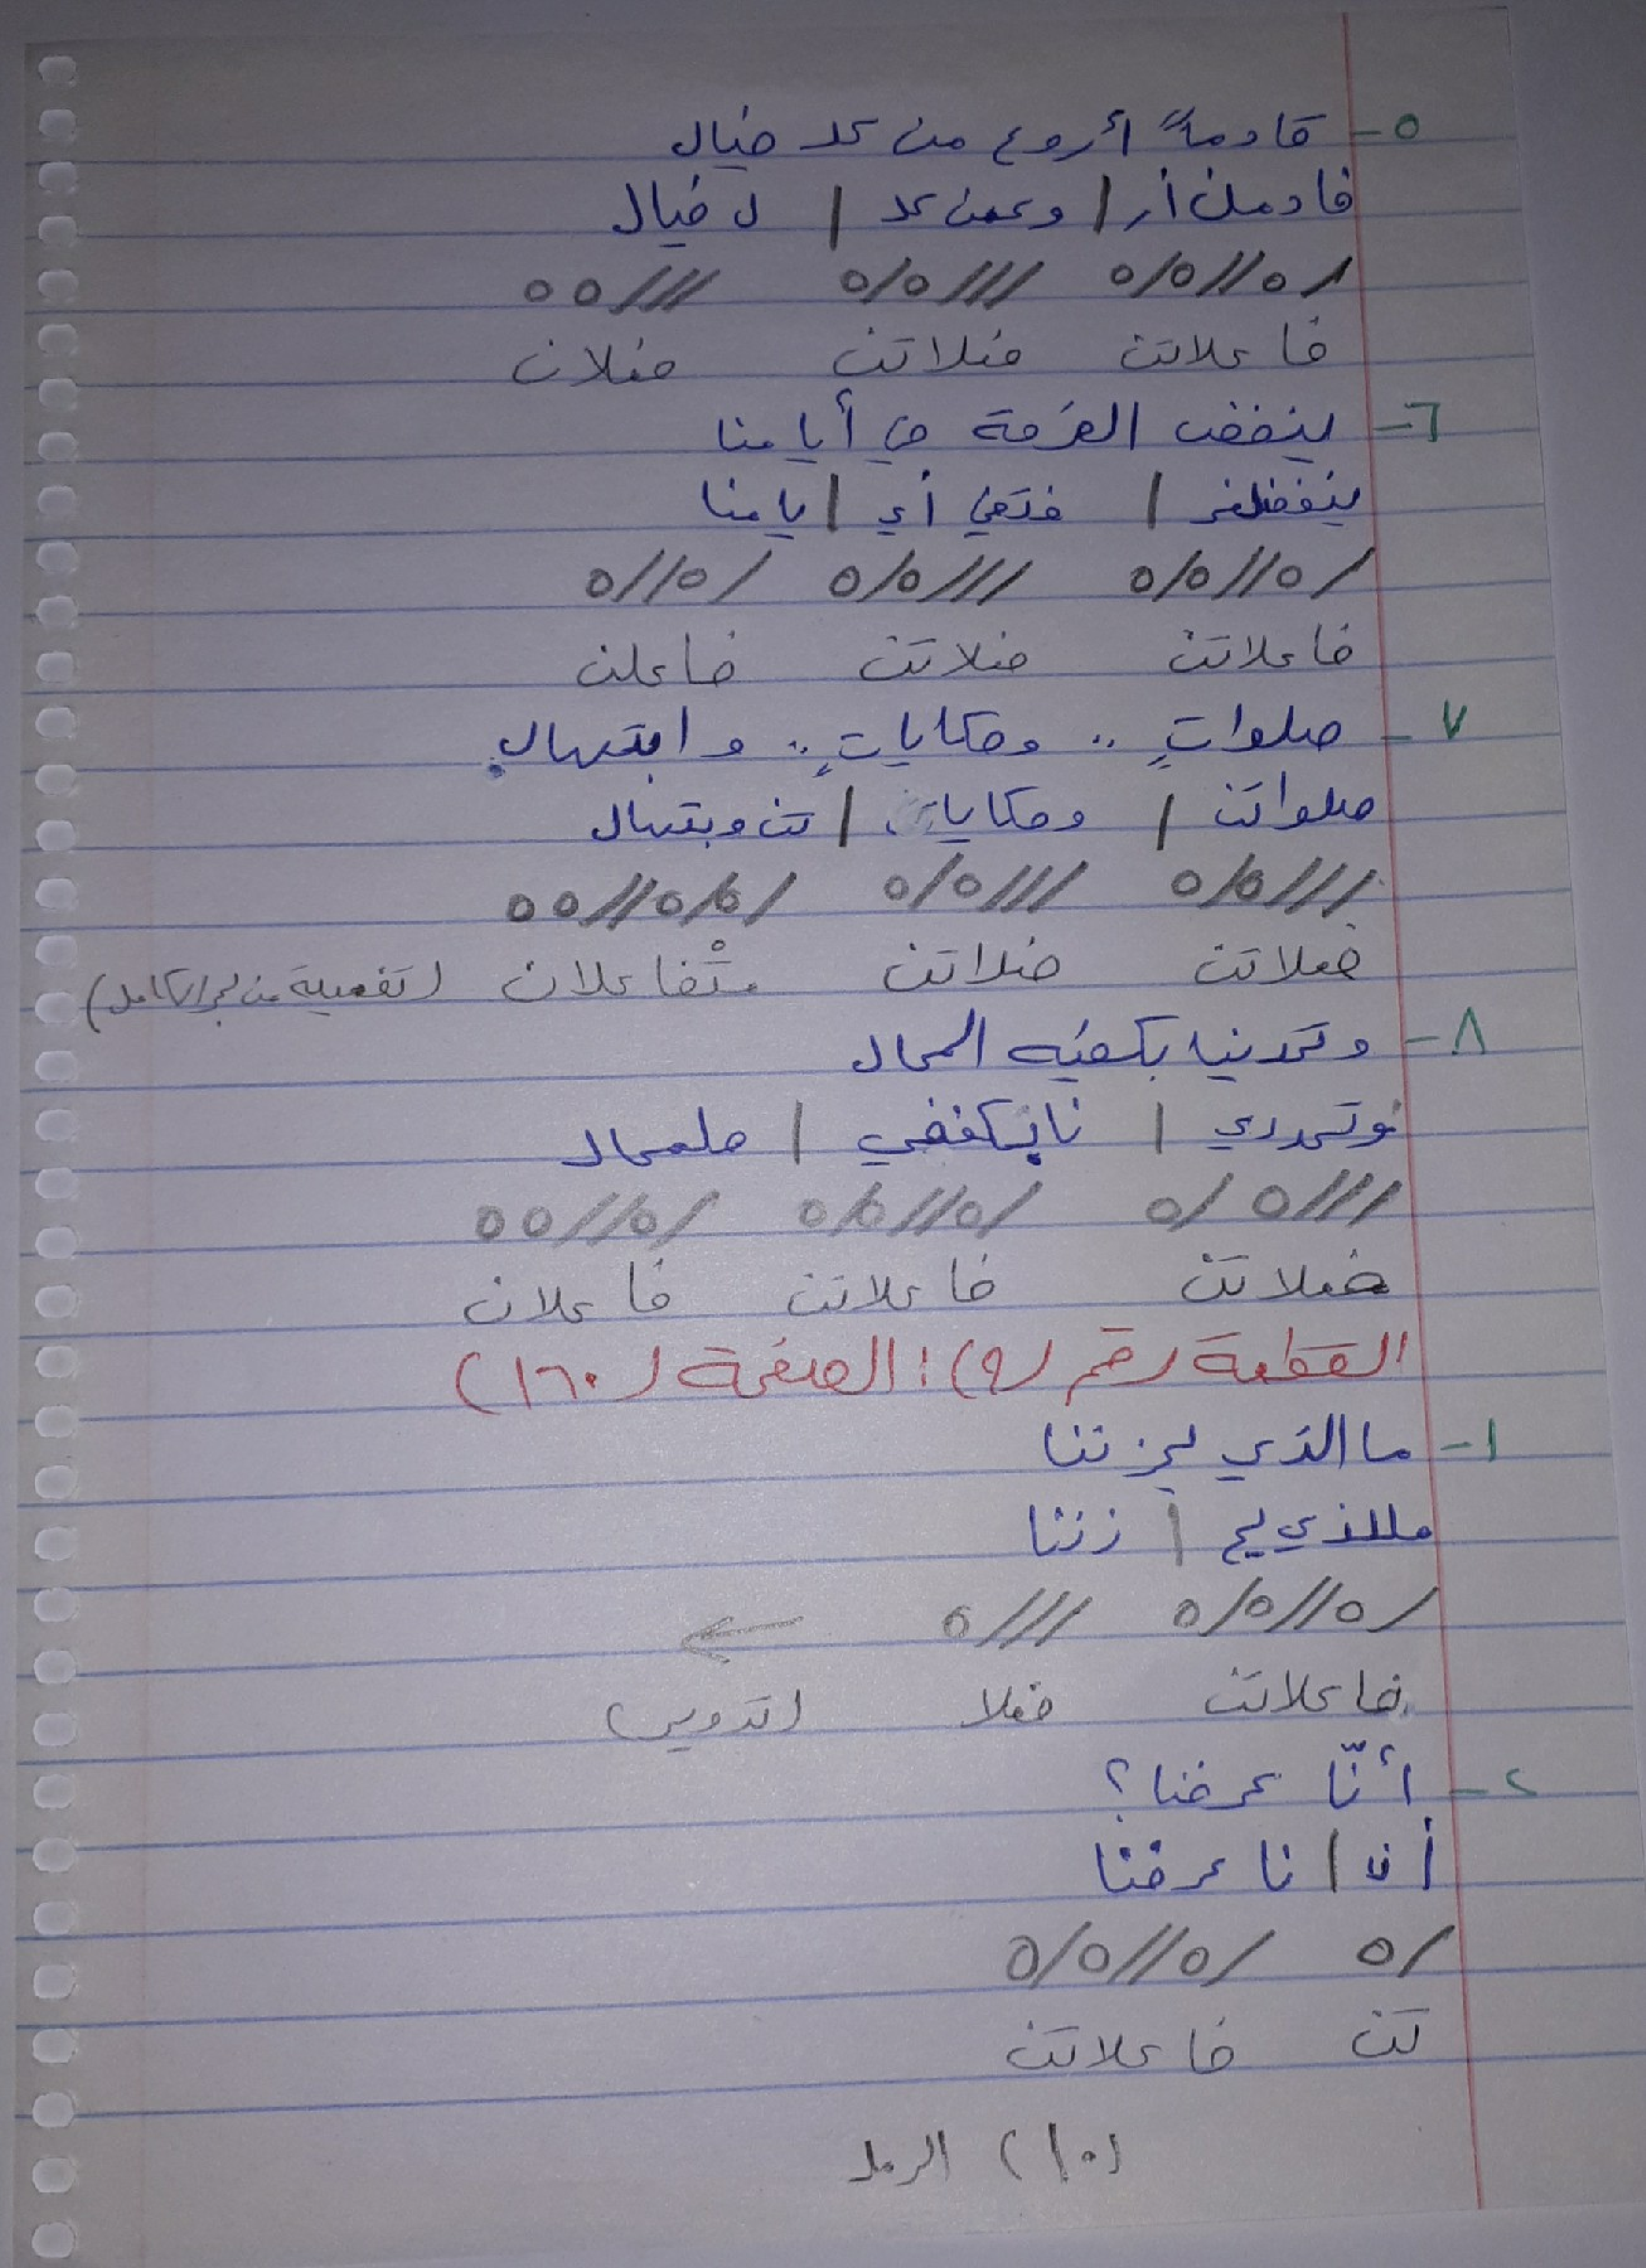 ٥- قادماً أروع من كل خيال
قادمن أر | وعمن كل | ل خيال
/ه//ه/ه ///ه/ه ///ه ه
فاعلاتن فعلاتن فعلان
٦- ينفض الغرفة في أيامنا
ينفضلغر | فتفي أي | يامنا
/ه//ه/ه ///ه/ه /ه//ه
فاعلاتن فعلاتن فاعلن
٧- صلواتٍ .. وحكاياتٍ .. وابتهال
صلواتن | وحكايا | تن وبتهال
///ه/ه ///ه/ه /ه/ه//ه ه
فعلاتن فعلاتن متْفاعلان (تفعيلة من بحر الكامل)
٨- وتمدينا بكفيه المحال
وتمددي | نابكففي | هلمحال
///ه/ه /ه//ه/ه /ه//ه ه
فعلاتن فاعلاتن فاعلان
القطعة رقم (٩): الصفحة (١٦٠)
١- ما الذي يحزننا
مللذي يح | زننا
/ه//ه/ه ///ه ←
فاعلاتن فعلا (تدوير)
٢- أنّا عرفنا؟
أن | نا عرفنا
/ه /ه//ه/ه
تن فاعلاتن
(١٠) الرمل